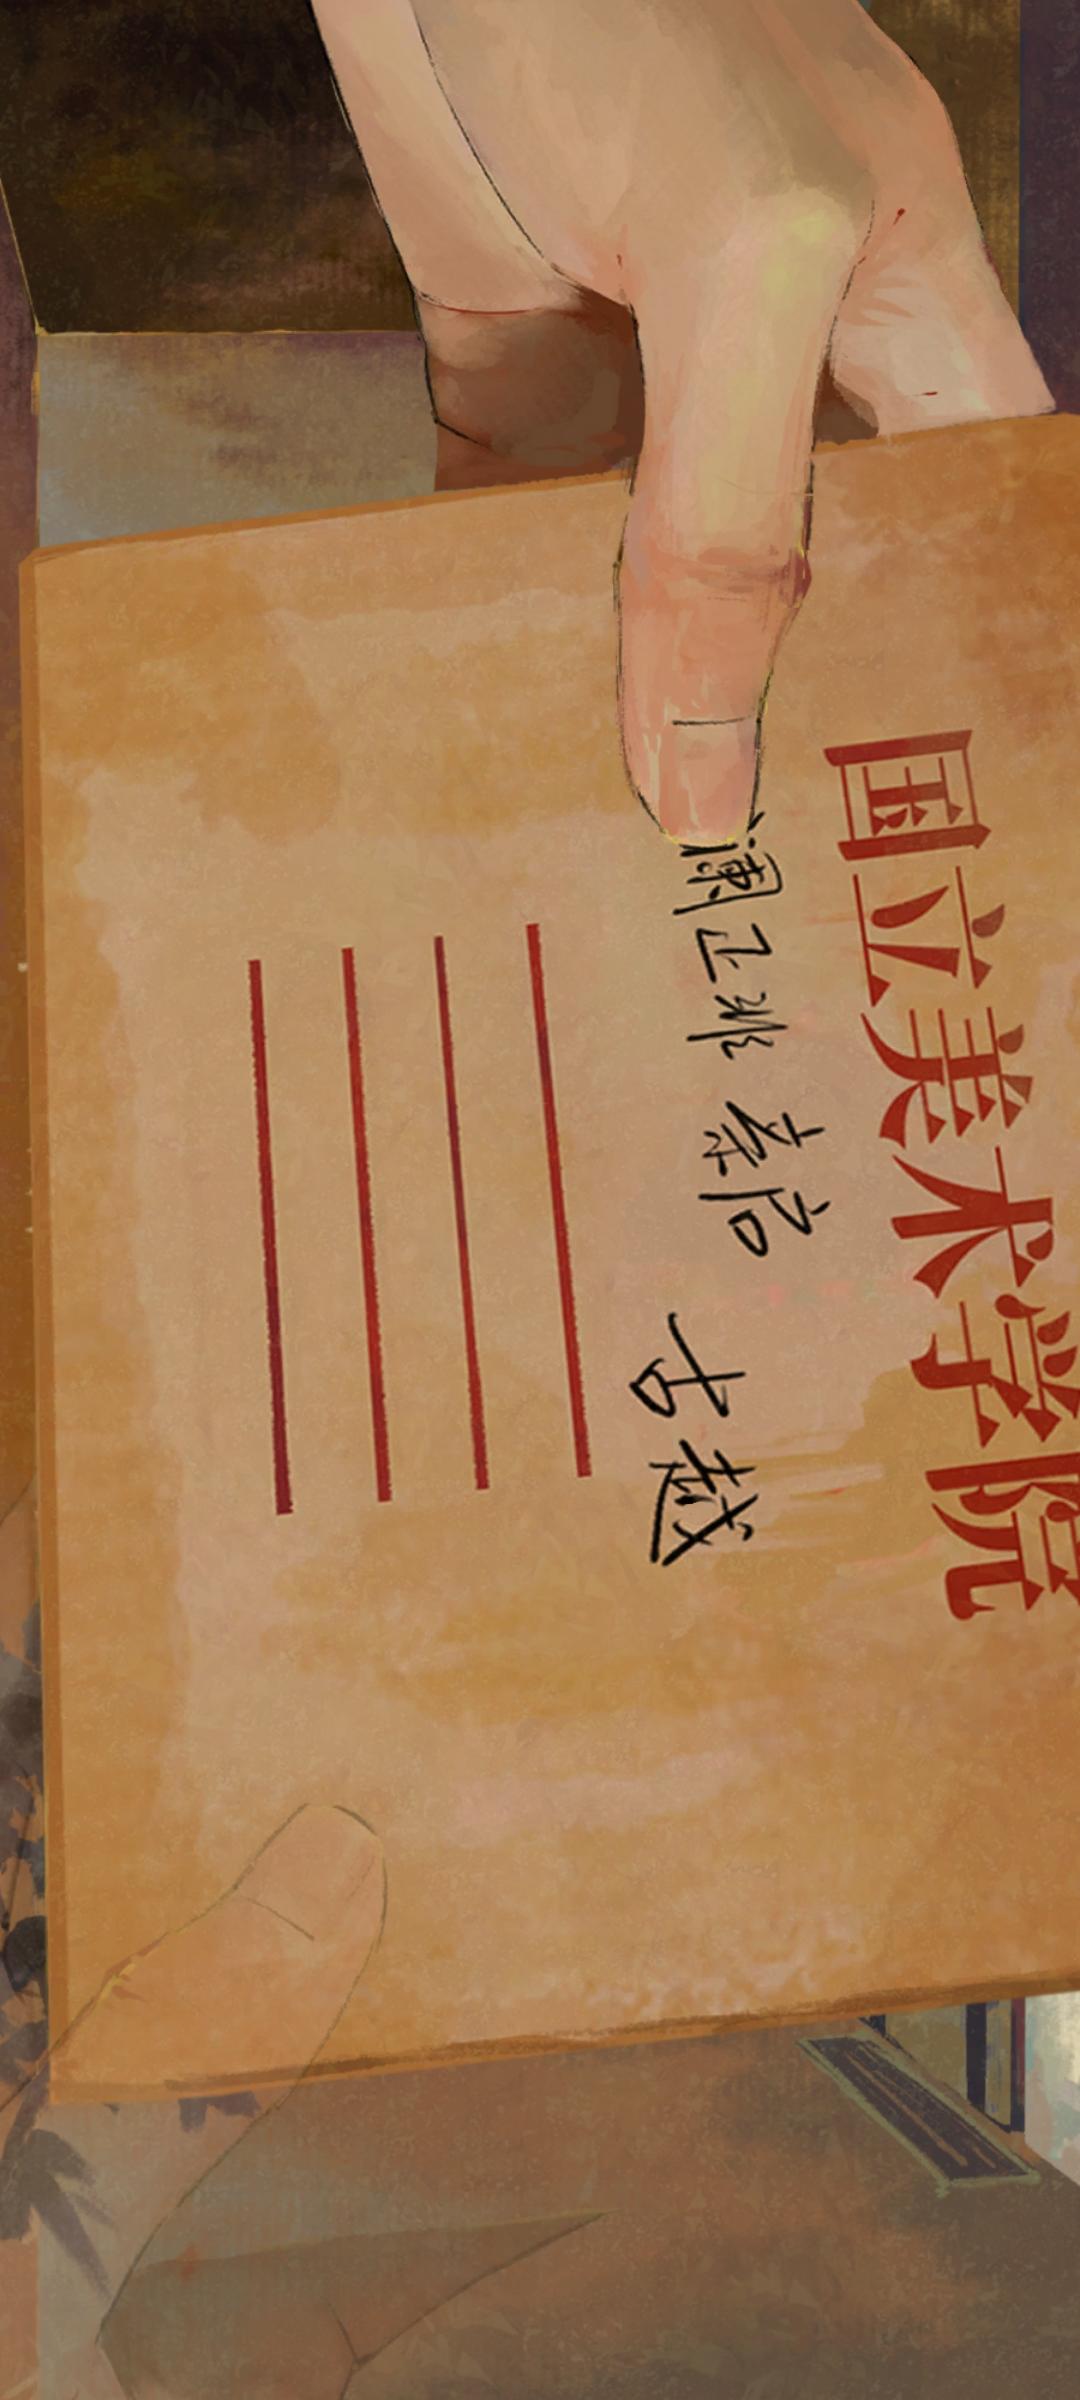 国立美术学院
澜正 亲启
古越